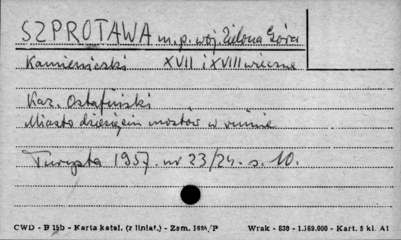 SZPROTAWA m.p. woj. Zielona Góra
Kamieniczki XVII i XVIII wieczne
Kaz. Ostafiński
Miasto dziesięciu mostów w ruinie
Turysta 1957. nr 23/24. s. 10.
CWD - B 15b - Karta katal. (z liniat.) - Zam. /P Wrak - 630 - 1.169.000 - Kart. 5 kl. A1